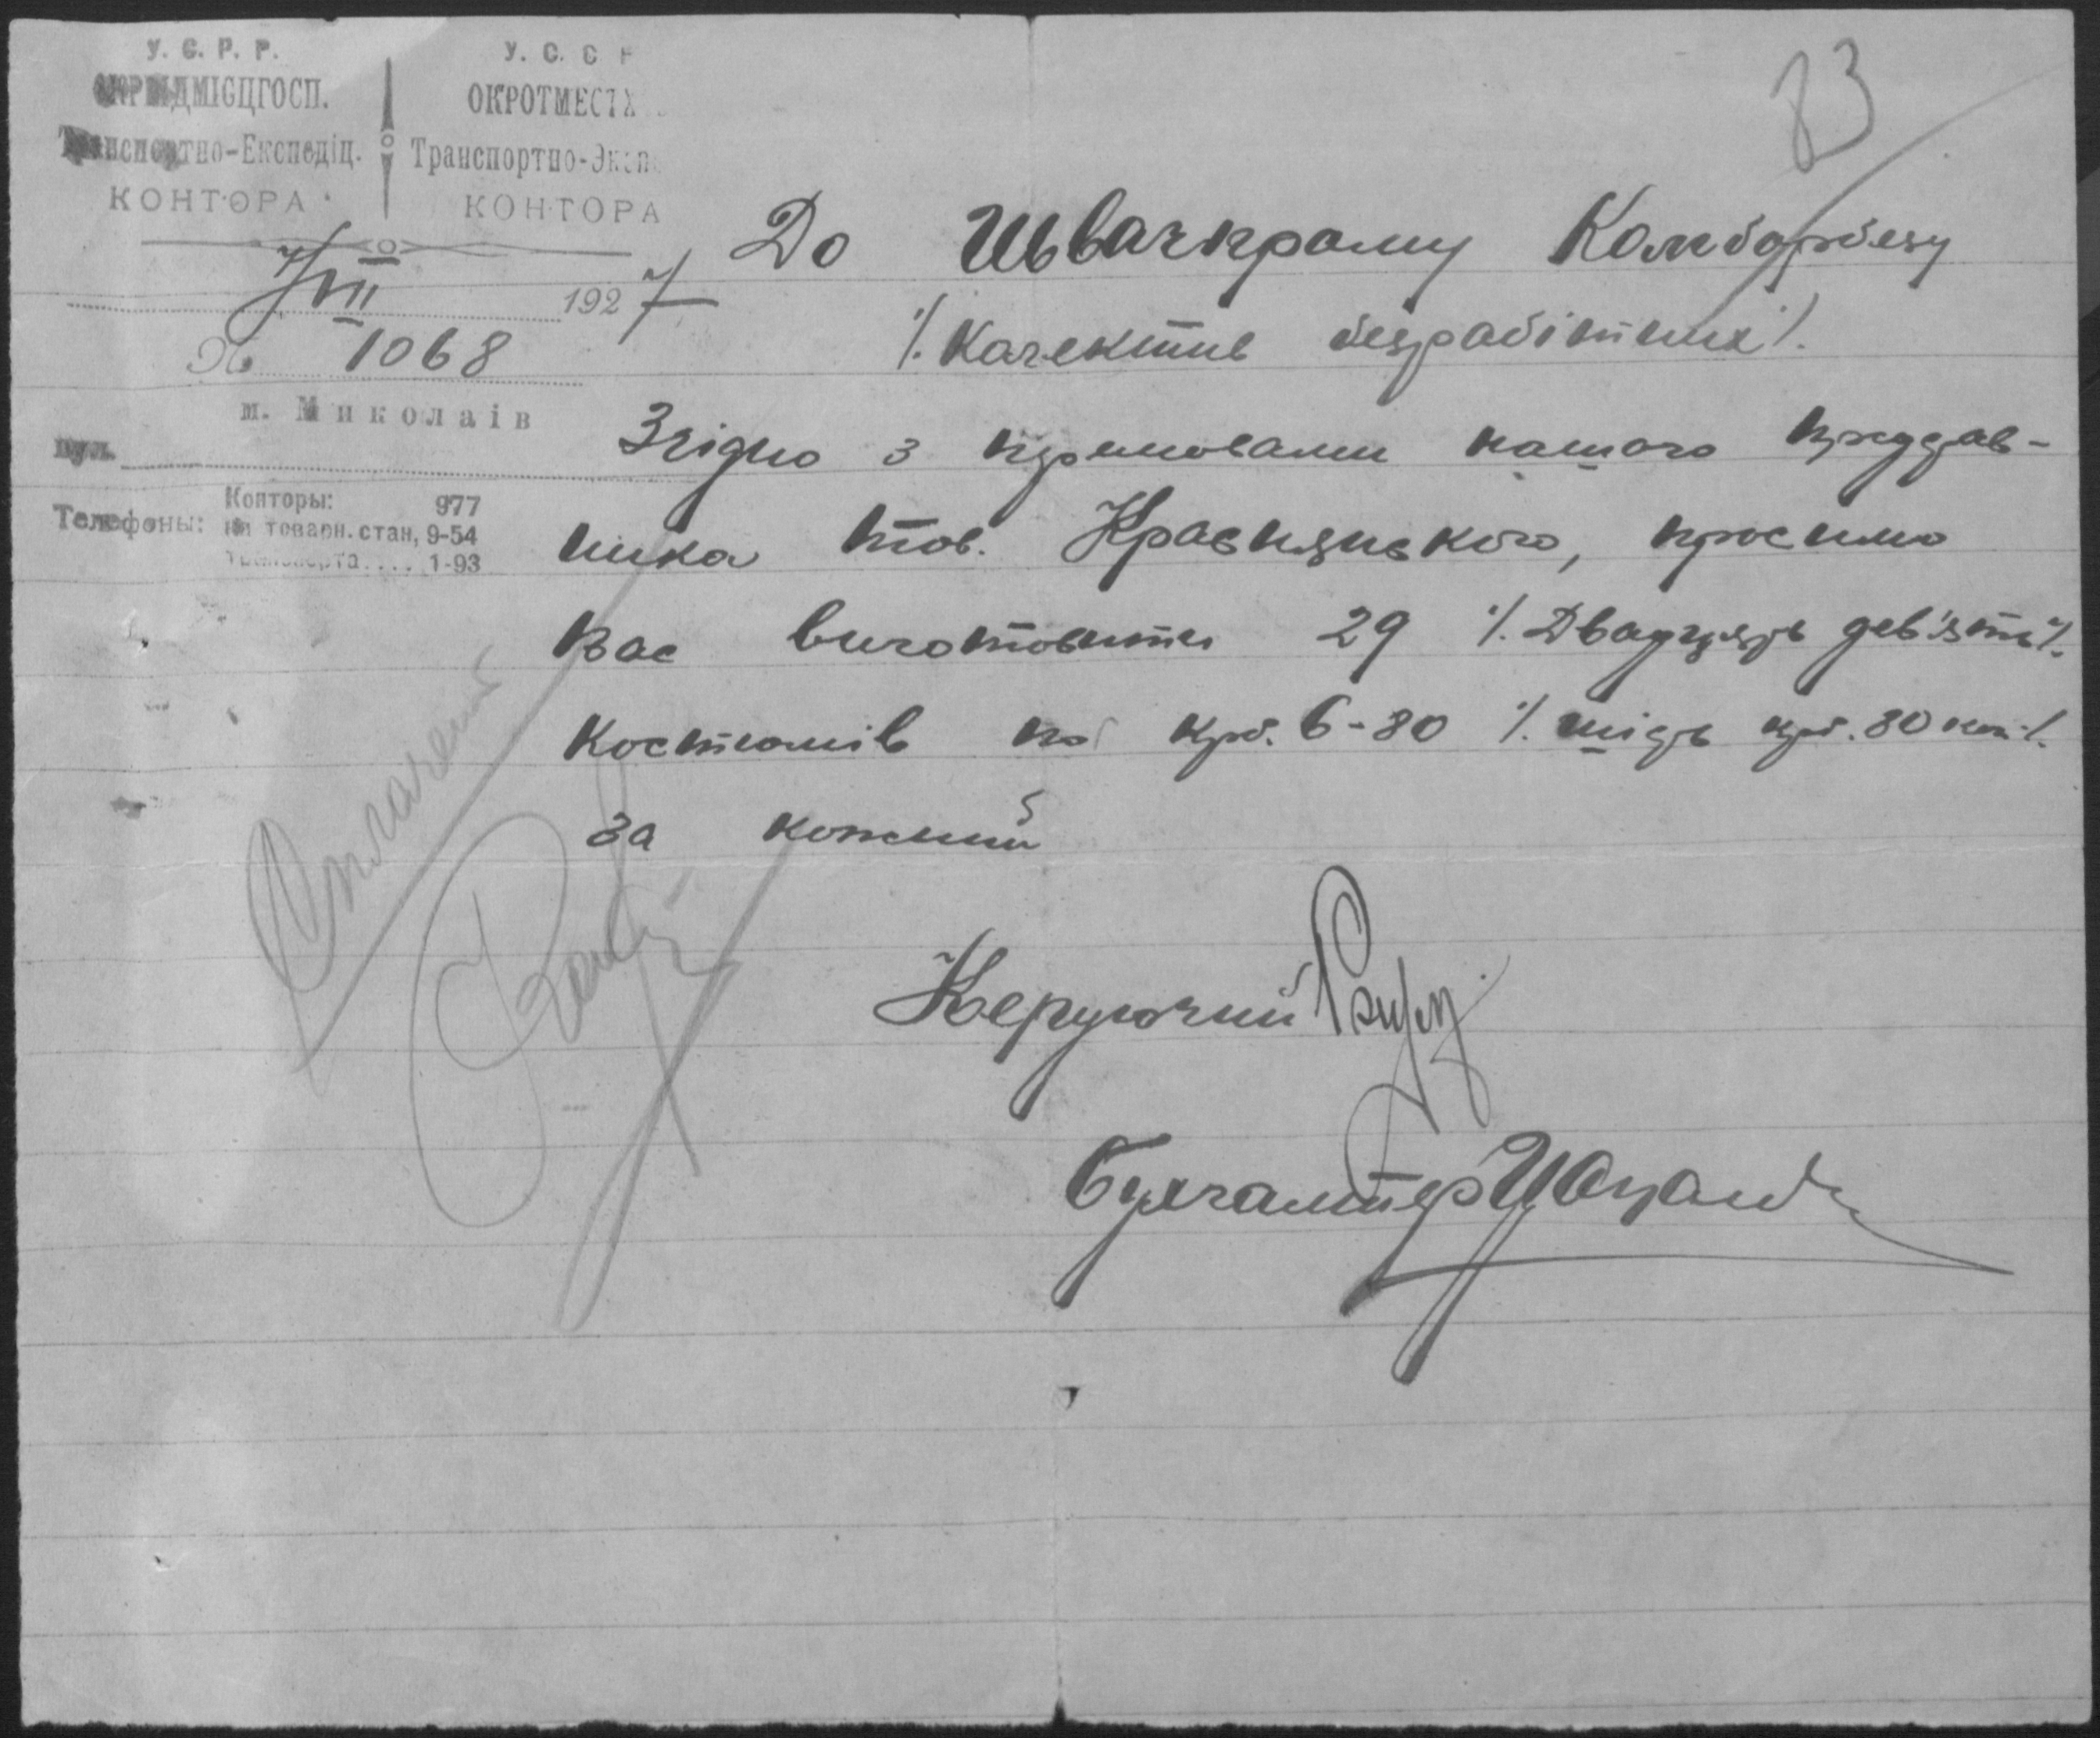 83
У. С. Р. Р.
ОКРВІДМІСЦГОСП.
Транспортно-Експедіц.
КОНТОРА
У. С. С. Р
ОКРОТМЕСТХ
Транспортно-Эксп
КОНТОРА
7/VII 1927
№ 1068
м. Миколаів
вул.
Телефоны: Конторы: 977
на товарн. стан, 9-54
Транспорта.... 1-93
До Швачпрому Комборбезу
/. Колектив безработніх /.
Згідно з перемовами нашого представ-
ника тов. , просимо
Вас виготовити 29 /. Двадцядь дев'ять /.
костюмів по крб. 6-80 /. шідь крб. 80 коп /.
за кожний
Керуючий
Бухгалтер
Сплачений